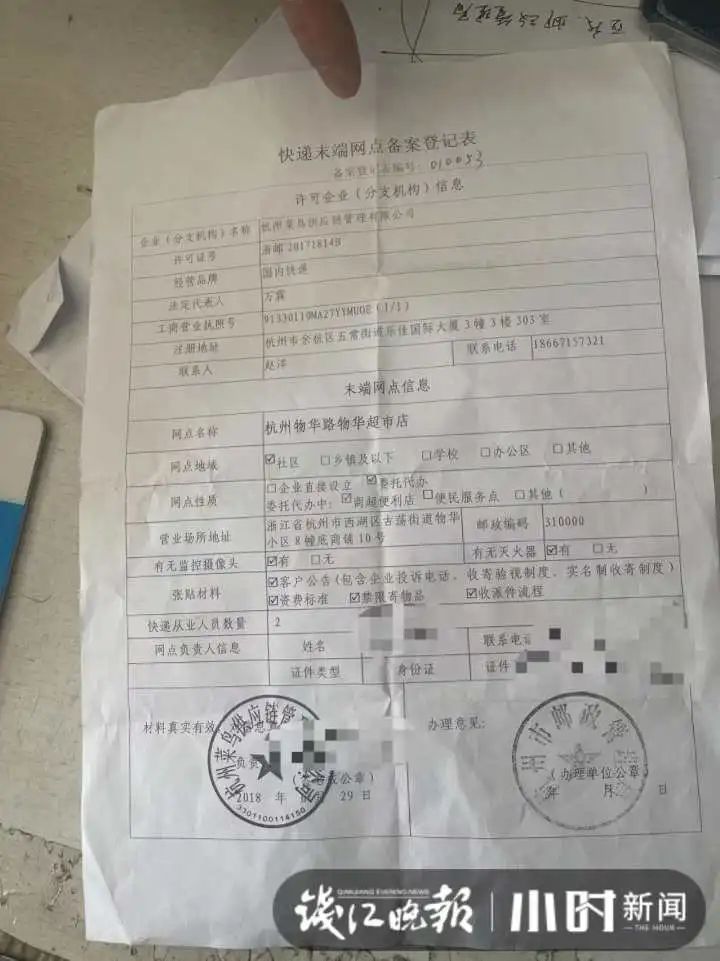 快递末端网点备案登记表
备案登记表编号：010053
许可企业（分支机构）信息
企业（分支机构）名称 杭州菜鸟供应链管理有限公司
许可证号 浙邮20171814B
经营品牌 国内快递
法定代表人 万霖
工商营业执照号 91330110MA27YYMU0E（1/1）
注册地址 杭州市余杭区五常街道乐佳国际大厦3幢3楼303室
联系人 赵洋 联系电话 18667157321
末端网点信息
网点名称 杭州物华路物华超市店
网点地域 ☑社区 □乡镇及以下 □学校 □办公区 □其他
网点性质 □企业直接设立 ☑委托代办
委托代办中：☑商超便利店 □便民服务点 □其他（ ）
营业场所地址 浙江省杭州市西湖区古荡街道物华小区8幢底商铺10号 邮政编码 310000
有无监控摄像头 ☑有 □无 有无灭火器 ☑有 □无
张贴材料 ☑客户公告(包含企业投诉电话、收寄验视制度、实名制收寄制度)
☑资费标准 ☑禁限寄物品 ☑收派件流程
快递从业人员数量 2
网点负责人信息 姓名 联系电话
证件类型 身份证 证件
材料真实有效，
办理意见：
负责
公章）
（办理单位公章）
2018 年 29日
年 月 日
杭州菜鸟供应链管 公司
3301100114150
州市邮政管
钱江晚报
QIANJIANG EVENING NEWS
小时新闻
THE HOUR